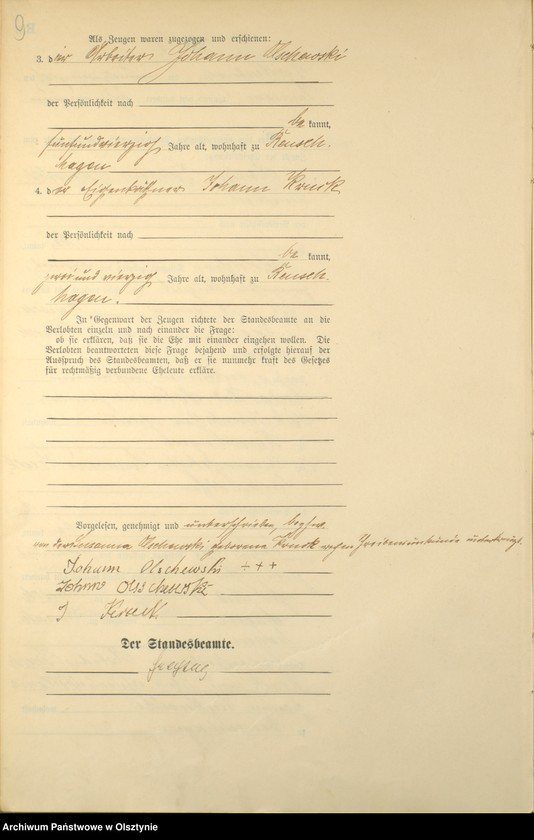 9
Als Zeugen waren zugezogen und erschienen:
3. der Arbeiter Johann Olschewski
der Persönlichkeit nach
be kannt,
fünfundvierzig Jahre alt, wohnhaft zu Reusch-
hagen
4. der Eigenkäthner Johann Kruck
der Persönlichkeit nach
be kannt,
zwei und vierzig Jahre alt, wohnhaft zu Reusch-
hagen.
In Gegenwart der Zeugen richtete der Standesbeamte an die
Verlobten einzeln und nach einander die Frage:
ob sie erklären, daß sie die Ehe mit einander eingehen wollen. Die
Verlobten beantworteten diese Frage bejahend und erfolgte hierauf der
Ausspruch des Standesbeamten, daß er sie nunmehr kraft des Gesetzes
für rechtmäßig verbundene Eheleute erkläre.
Vorgelesen, genehmigt und unterschrieben, bezhw.
von der Susanna Olschewski geborene Kruck wegen Schreibensunkunde unterkreuzt.
Johann Olschewski + + +
Johann Olschewski
J Kruck
Der Standesbeamte.
Archiwum Państwowe w Olsztynie